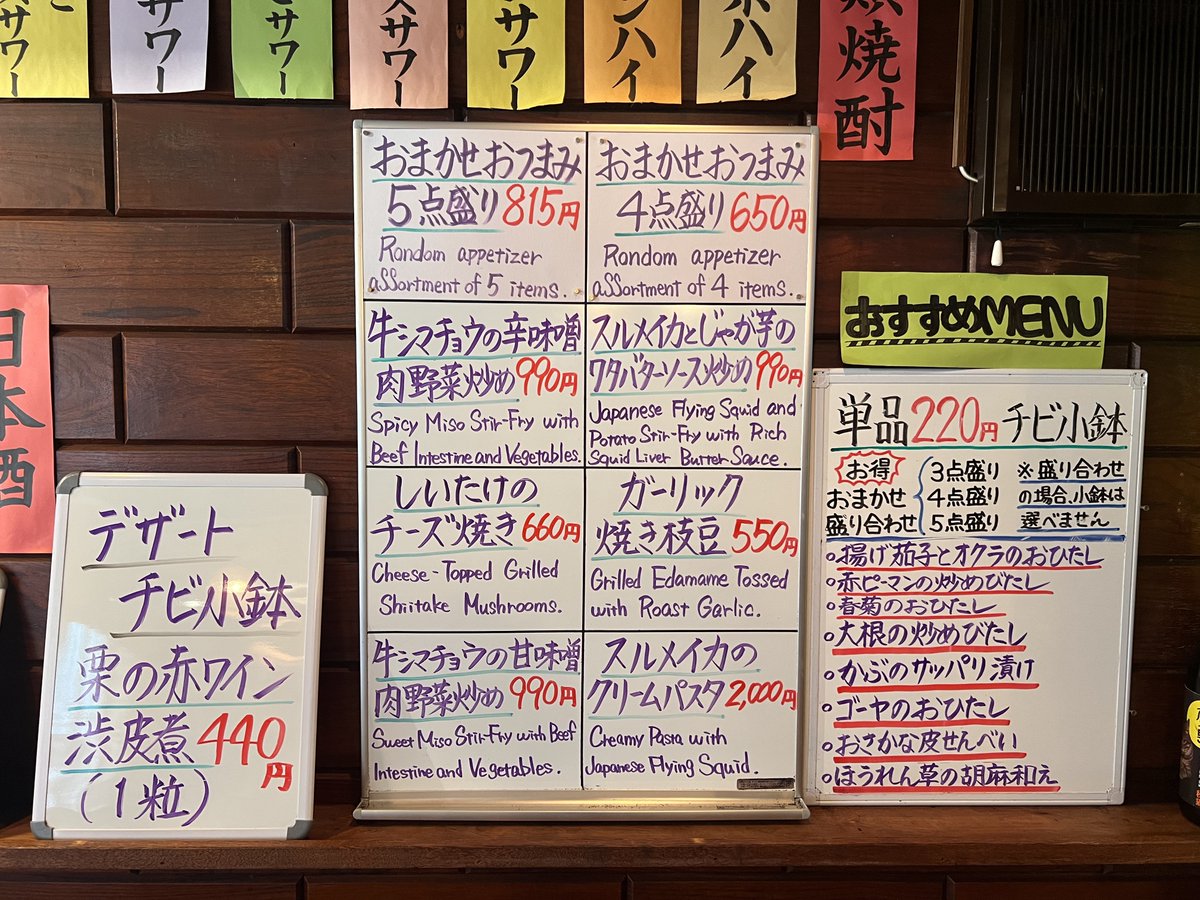 サワー
サワー
サワー
サワー
サワー
ハイ
ハイ
焼酎
日本酒
デザート
チビ小鉢
栗の赤ワイン
渋皮煮 440円
(1粒)
おまかせおつまみ
5点盛り 815円
Random appetizer
assortment of 5 items.
おまかせおつまみ
4点盛り 650円
Random appetizer
assortment of 4 items.
牛シマチョウの辛味噌
肉野菜炒め 990円
Spicy Miso Stir-Fry with
Beef Intestine and Vegetables.
スルメイカとじゃが芋の
ワタバターソース炒め 990円
Japanese Flying Squid and
Potato Stir-Fry with Rich
Squid Liver Butter Sauce.
しいたけの
チーズ焼き 660円
Cheese-Topped Grilled
Shiitake Mushrooms.
ガーリック
焼き枝豆 550円
Grilled Edamame Tossed
with Roast Garlic.
牛シマチョウの甘味噌
肉野菜炒め 990円
Sweet Miso Stir-Fry with Beef
Intestine and Vegetables.
スルメイカの
クリームパスタ 2,000円
Creamy Pasta with
Japanese Flying Squid.
おすすめMENU
単品220円チビ小鉢
お得
おまかせ
盛り合わせ
3点盛り
4点盛り
5点盛り
※盛り合わせ
の場合、小鉢は
選べません
○揚げ茄子とオクラのおひたし
○赤ピーマンの炒めびたし
○春菊のおひたし
○大根の炒めびたし
○かぶのサッパリ漬け
○ゴーヤのおひたし
○おさかな皮せんべい
○ほうれん草の胡麻和え